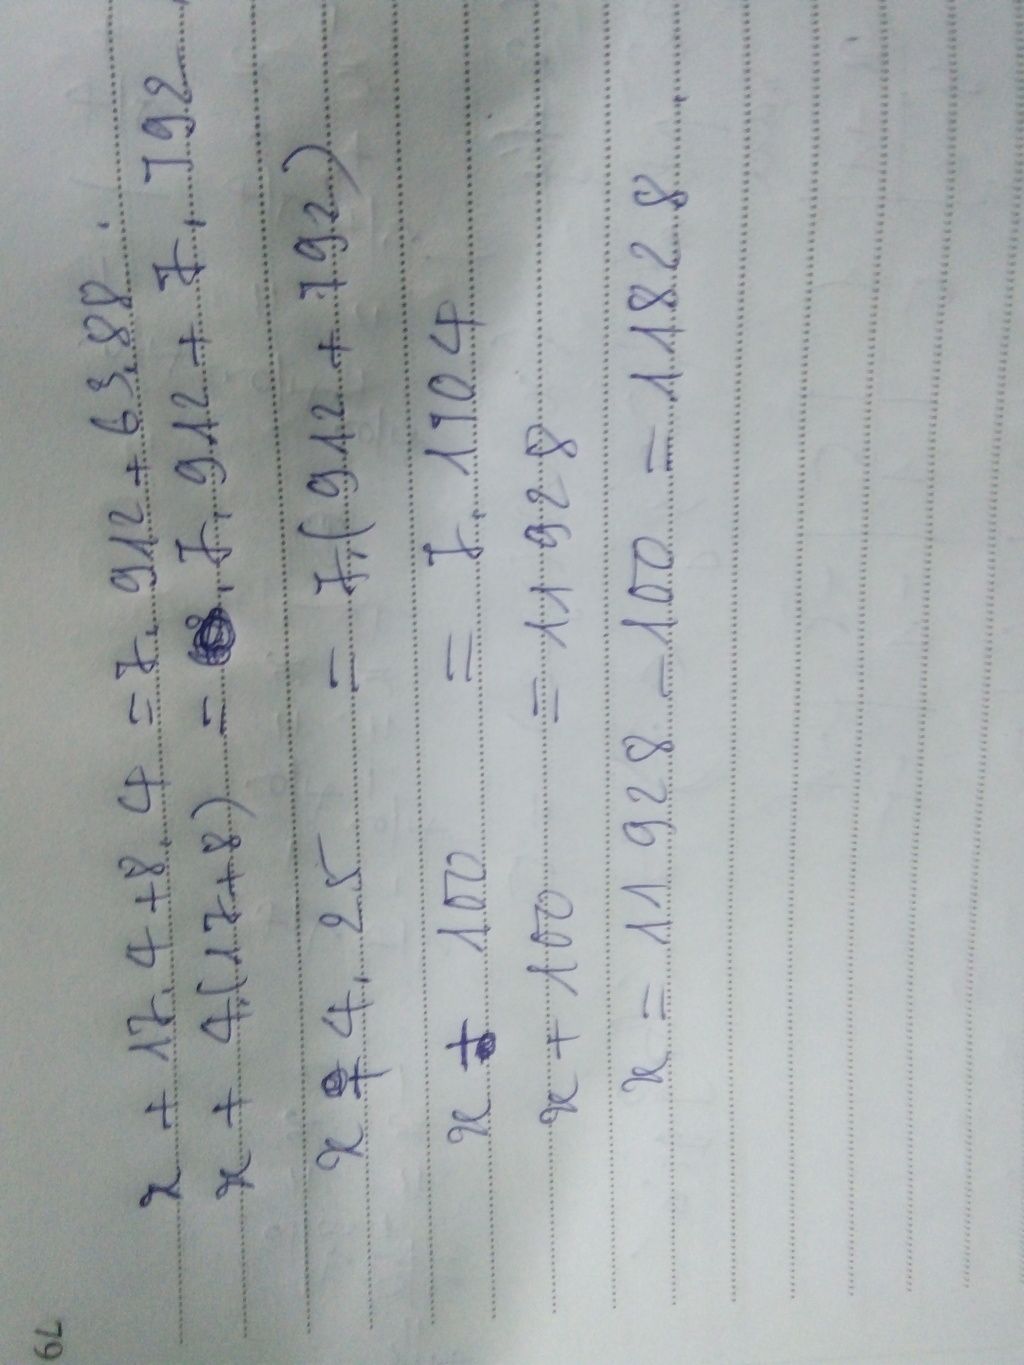 79
x + 17.4+8.4 =7.912+63.88.
x + 4.(17+8) = 7.912+ 7.792
x + 4.25 = 7.(912+792)
x + 100 = 7.1704
x + 100 = 11928
x = 11928 - 100 = 11828.